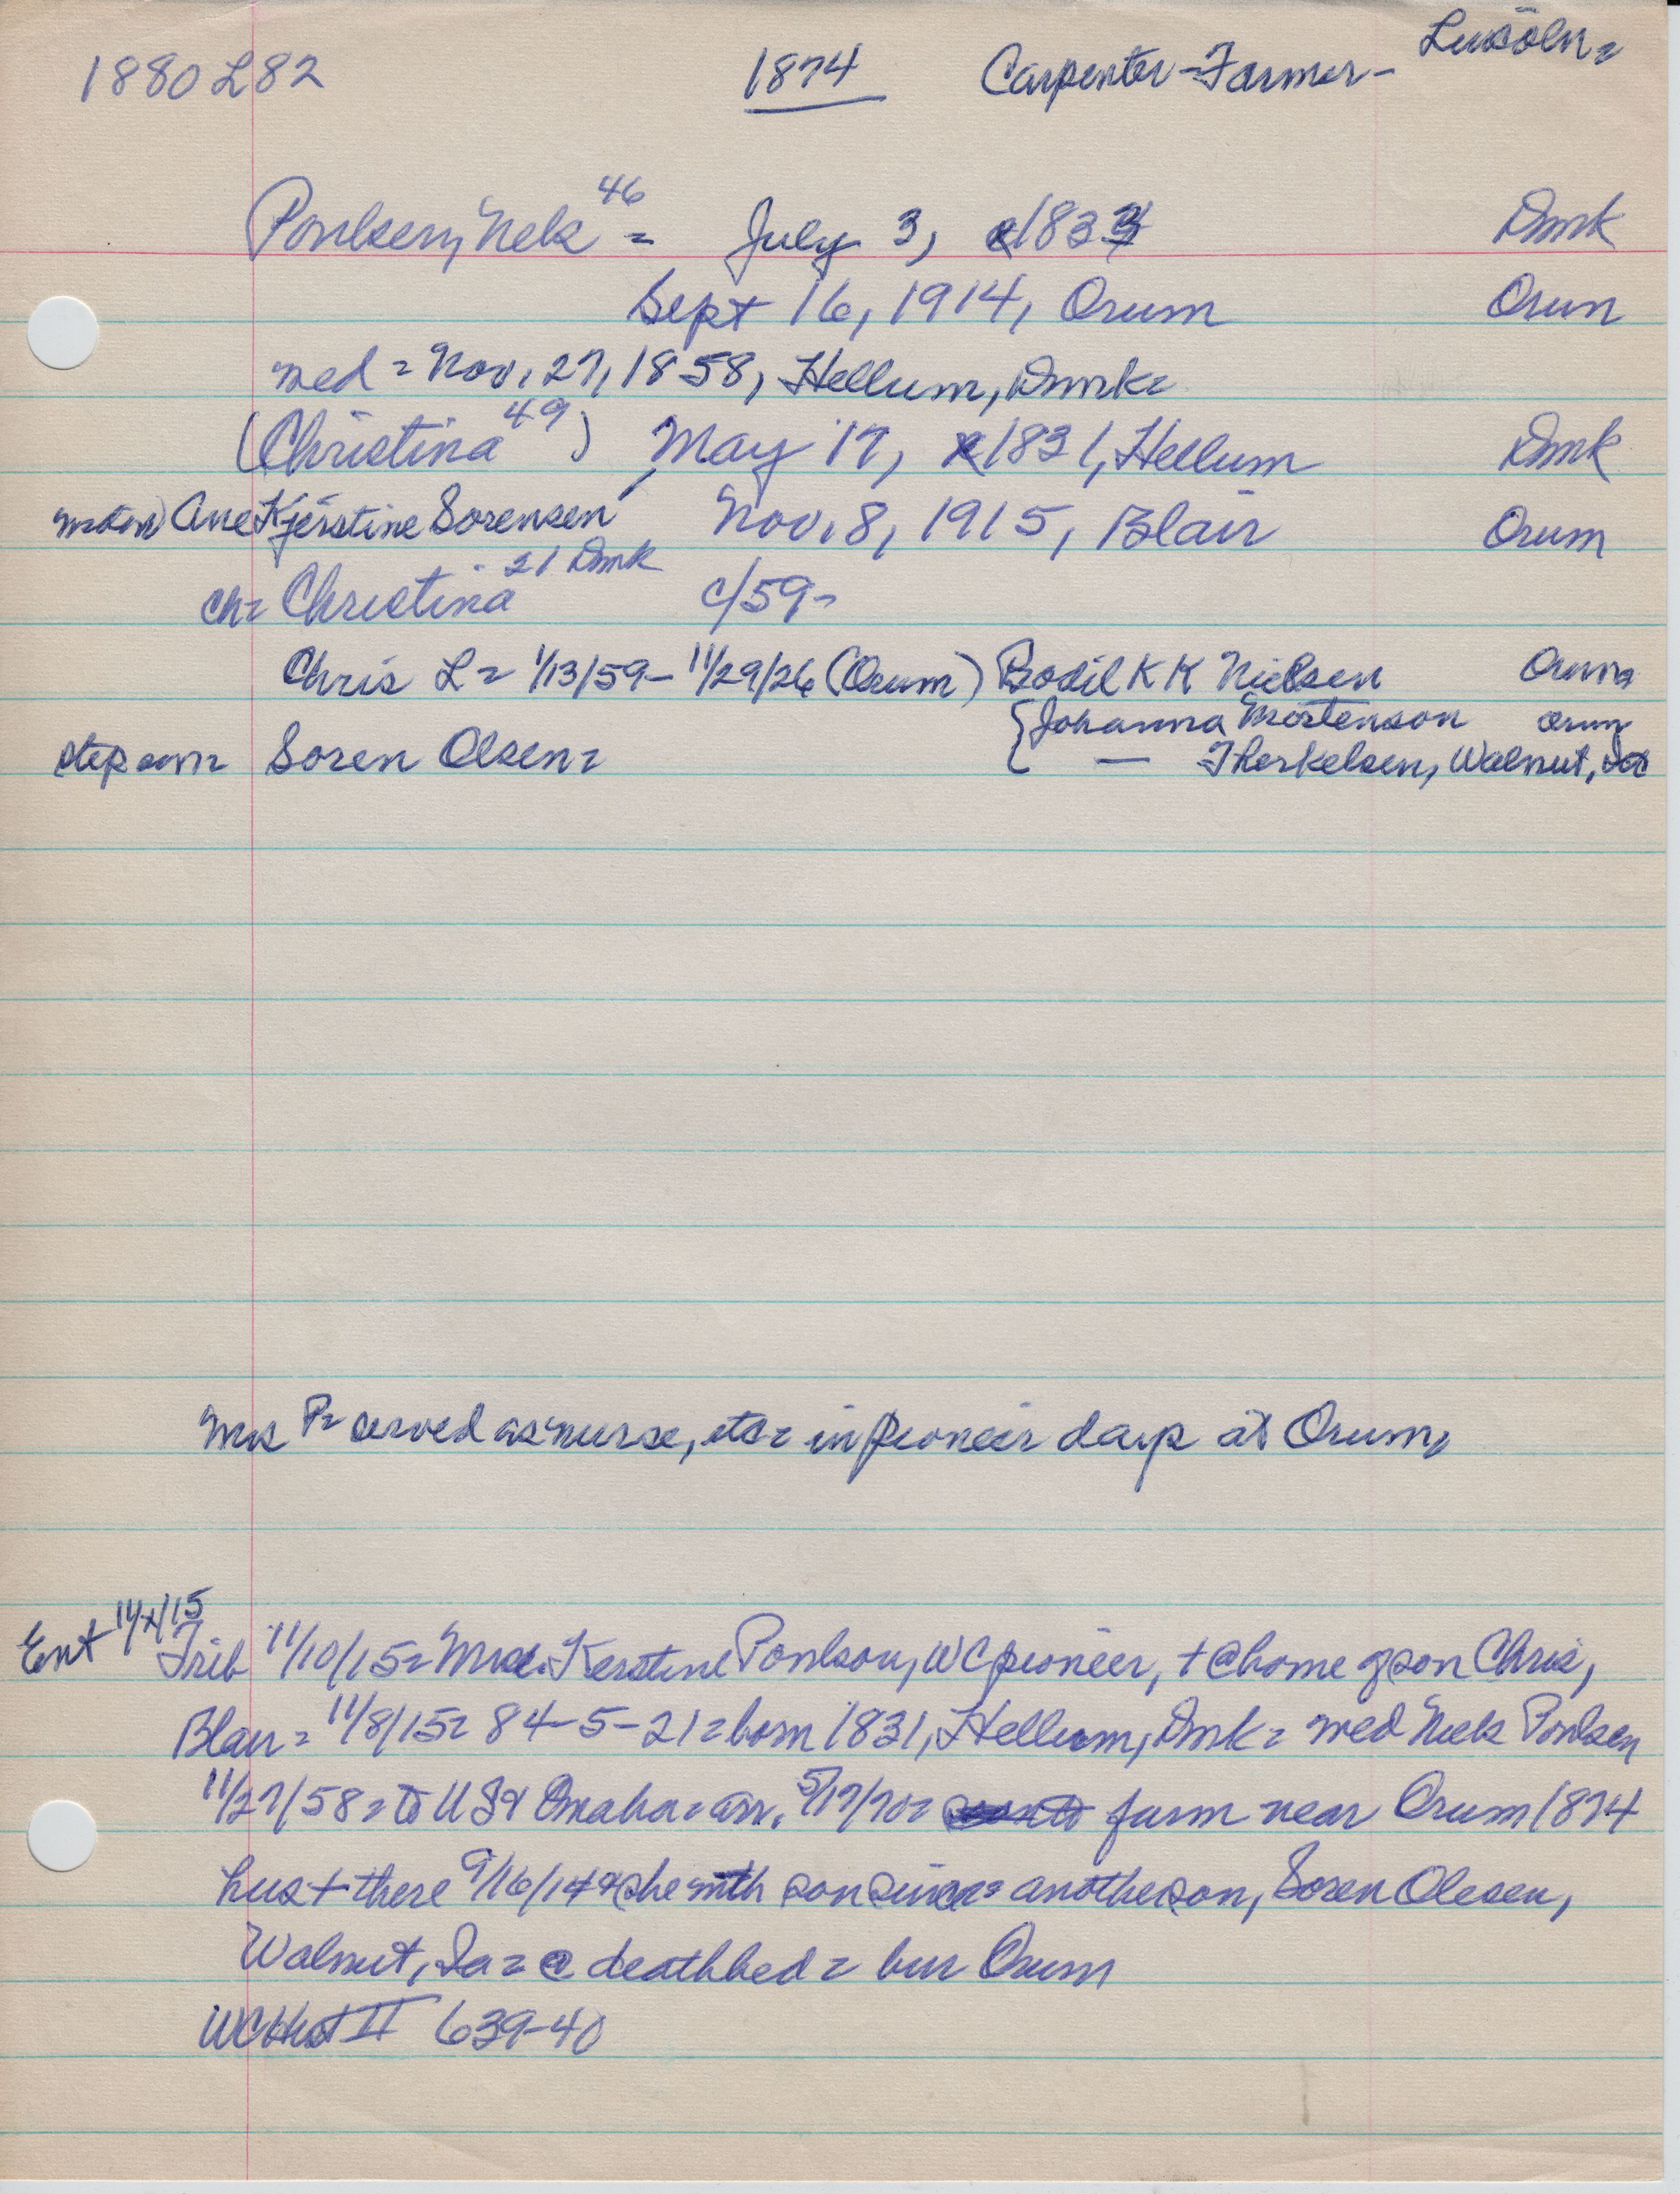 1880 L82 1874 Carpenter-Farmer- Lincoln=
Poulsen, Nels 46 = July 3, 1834 Dmk
Sept 16, 1914, Orum Orum
med = Nov. 27, 1858, Hellum, Dmk=
(Christina 49) May 17, 1831, Hellum Dmk
Ane Kjerstine Sorensen Nov. 8, 1915, Blair Orum
ch= Christina 21 Dmk c/59-
Chris L= 1/13/59- 11/29/26 (Orum) Bodil K K Nielsen Orum
{Johanna Mortenson Orum
step son= Soren Olsen= — Therkelsen, Walnut, Ia
Mrs P= served as nurse, etc= in pioneer days at Orum,
Ent 11/ /15
Trib 11/10/15= Mrs. Kerstine Poulson, WC pioneer, + @ home of son Chris,
Blair = 11/8/15= 84-5-21= born 1831, Hellum, Dmk= med Nels Poulsen
11/27/58= to US & Omaha= arr. 5/17/70= farm near Orum 1874
hus + there 9/16/14 & she with son since= another son, Soren Olesen,
Walnut, Ia= @ deathbed= bur Orum
WCHist II 639-40